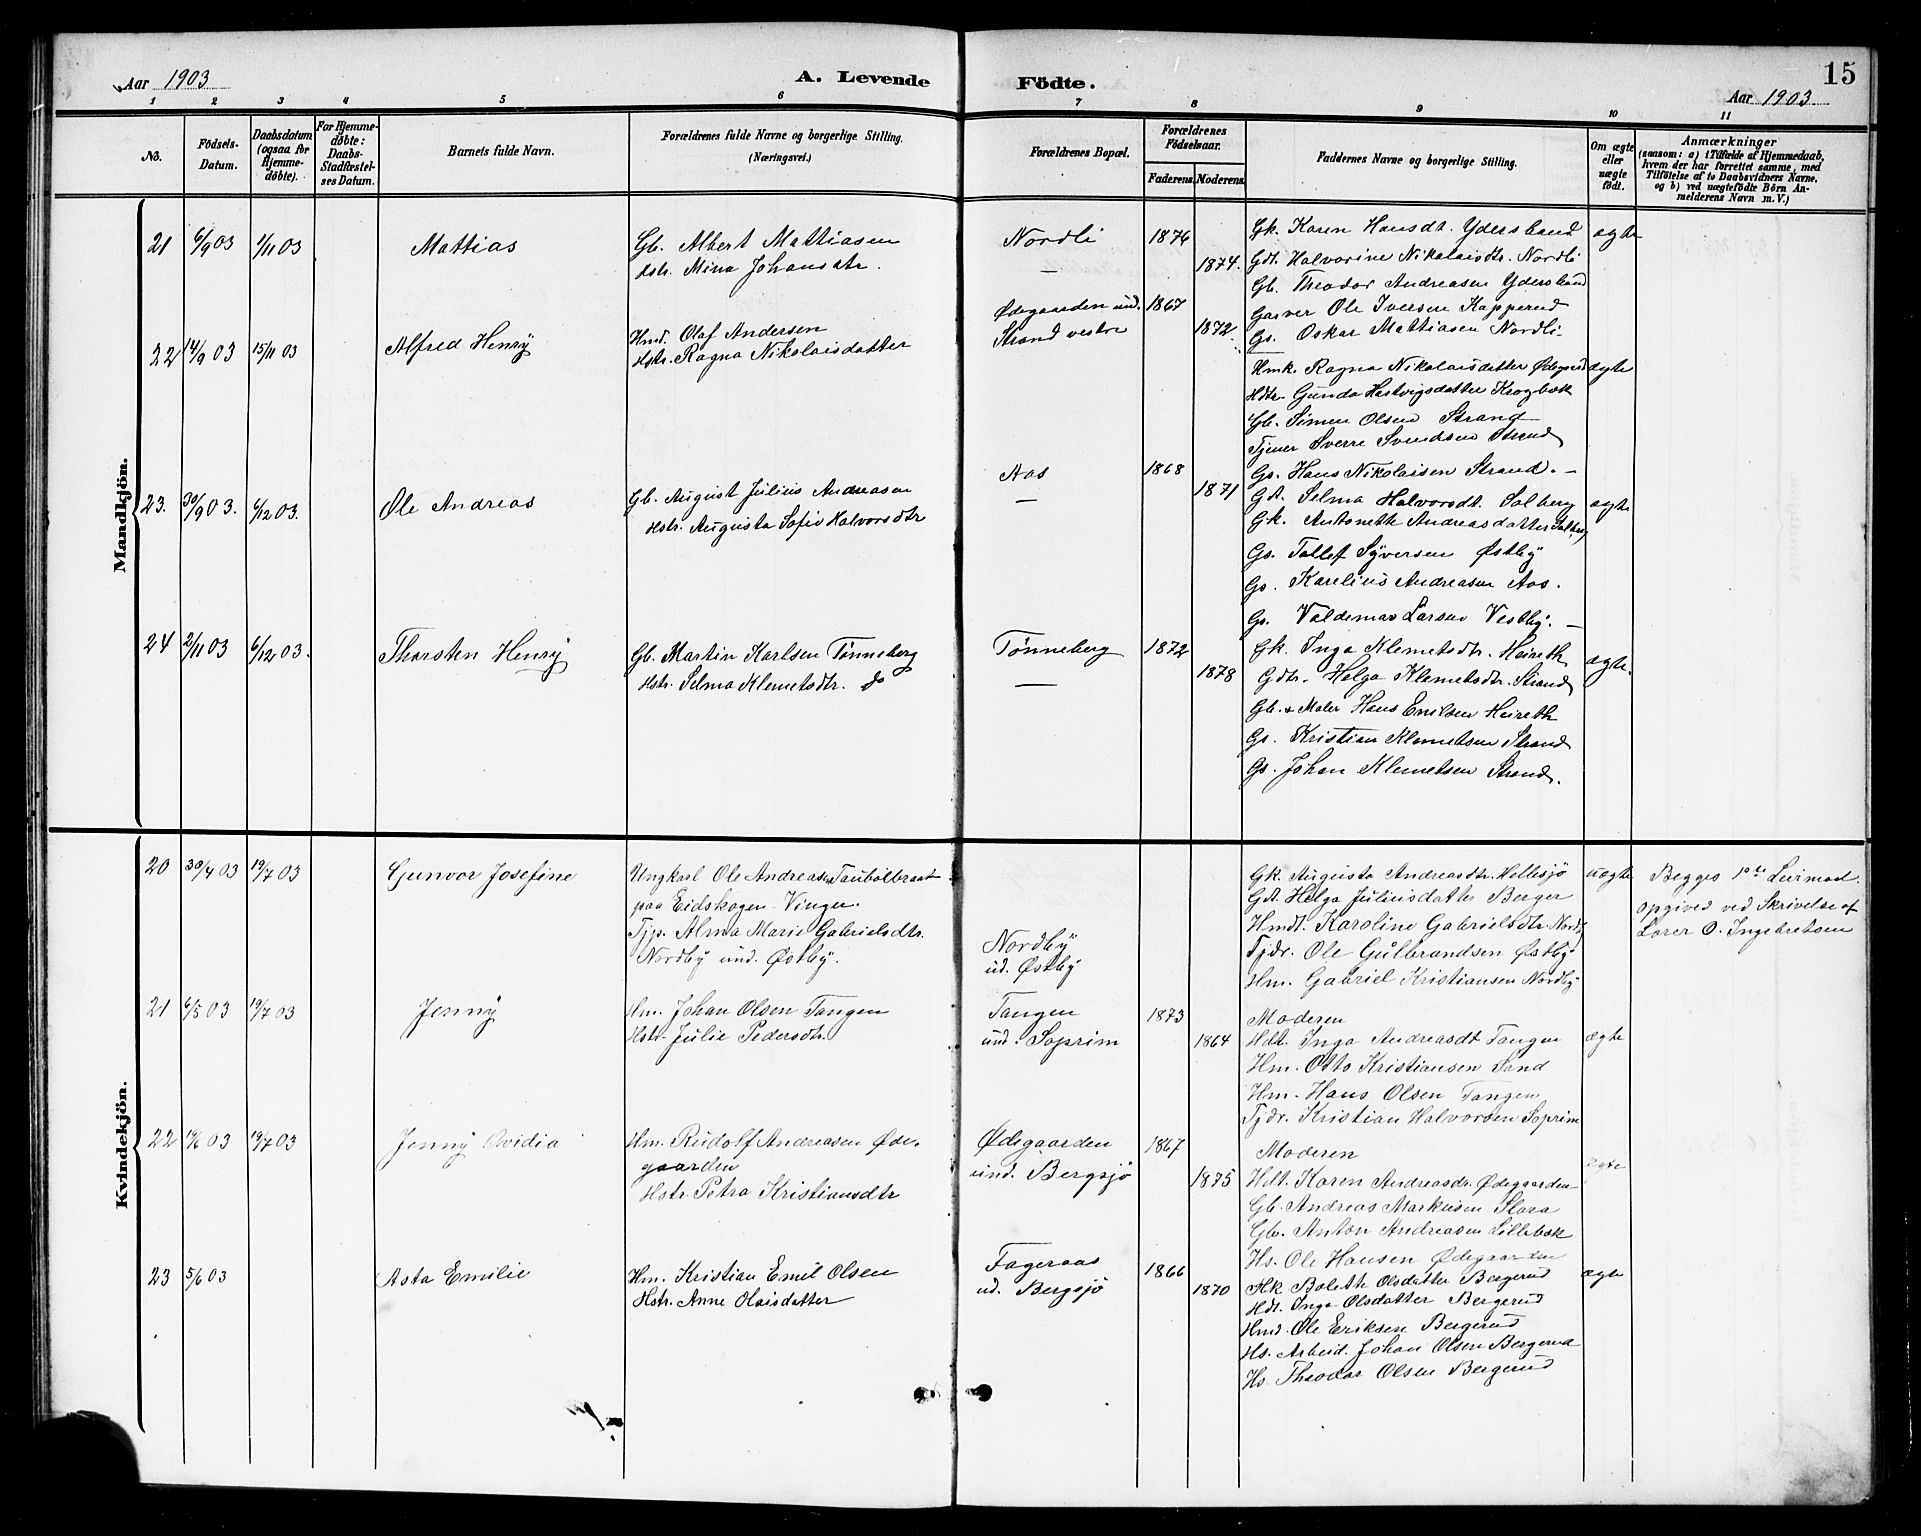 Aar 1903
A. Levende
Födte.
15
Aar 1903
1 2 3 4 5 6 7 8 9 10 11
No.
Födsels-
Datum.
Daabsdatum
(ogsaa for
Hjemme-
döbte).
For Hjemme-
döbte:
Daabs-
Stadfæstel-
ses Datum.
Barnets fulde Navn.
Forældrenes fulde Navne og borgerlige Stilling.
(Næringsvei.)
Forældrenes Bopæl.
Forældrenes
Födselsaar.
Faderens.
Moderens.
Faddernes Navne og borgerlige Stilling.
Om ægte
eller
uægte
født.
Anmærkninger
(saasom: a) i Tilfælde af Hjemmedaab,
hvem der har forrettet samme, med
Tilföielse af to Daabsvidners Navne,
og b) ved uægtefödte Börn An-
melderens Navn m. V.)
Mandkjön.
21 6/9 03 1/11 03 Mattias
Gb. Albert Mattiasen
Hstr. Mina Johansdtr.
Nordli
—
1876
1874.
Gk. Karen Hansdt. Ydersbund
Gdt. Halvorine Nikolaisdtr. Nordli
Gb. Theodor Andreasen Ydersbund
Garver Ole Iversen Kopperud
Gs. Oskar Mattiasen Nordli
ægte
22 14/9 03 15/11 03 Alfred Henry
Hmd. Olaf Andersen
Hstr. Ragna Nikolaisdatter
Ødegaarden und.
Strand vestre
1867
1872
Hmk. Ragna Nikolaisdatter Ødegaard
Hdtr. Gunda Hartvigsdatter Krogbæk
Gb. Simen Olsen Strand
Tjener Sverre Svendsen Strand
Gs. Hans Nikolaisen Strand. —
ægte
23. 30/9 03. 6/12 03. Ole Andreas
Gb. August Julius Andreasen
Hstr. Augusta Sofie Halvorsdtr
Aas
—
1868
1871
Gdt. Selma Halvorsdt. Solberg
Gk. Antonette Andreasdatter Solberg
Gs. Tollef Syversen Østby
Gs. Karelius Andreasen Aas.
Gs. Valdemar Larsen Vestby. —
ægte
24 2/11 03 6/12 03. Thorsten Henry
Gb. Martin Karlsen Tønneberg
Hstr. Selma Klemetsdtr. do
Tønneberg
—
1872
1878
Gk. Inga Klemetsdtr. Heireth
Gdtr. Helga Klemetsdtr. Strand
Gb. & Maler Hans Emilsen Heireth
Gs. Kristian Klemetsen Strand
Gs. Johan Klemetsen Strand.
ægte.
Kvindekjön.
20 30/4 03 19/7 03 Gunvor Josefine
Ungkarl Ole Andreasen Taubolbraat
paa Eidskogen Vinger.
Tjp. Alma Marie Gabrielsdtr.
Nordby und. Østby.
Nordby
ud. Østby
Gk. Augusta Andreasdtr. Hillesjö
Gdt. Helga Juliusdatter Berger
Hmdt. Karoline Gabrielsdtr. Nordby
Tjdr. Ole Gulbrandsen Østby
Hm. Gabriel Kristiansen Nordby
uægte
Begges 1ste Leiermaal.
opgived ved Skrivelse af
Lærer O. Ingebretsen
21 6/5 03 19/7 03 Jenny
Hm. Johan Olsen Tangen
Hstr. Julie Pedersdtr.
Tangen
und. Soprim
1873
1864
Moderen
Hdt. Inga Andreasdt Tangen
Hm. Otto Kristiansen Sand
Hm. Hans Olsen Tangen
Tjdr. Kristian Halvorsen Soprim
ægte
22 03 19/7 03 Jenny Ovidia
Hm. Rudolf Andreasen Øde-
gaarden
Hstr. Petra Kristiansdtr
Ødegaarden
und. Bergsjø
1867
1875
Moderen
Hdt. Karen Andreasdr. Ødegaarden
Gb. Andreas Markusen Slora
Gb. Anton Andreasen Lillebæk
Hs. Ole Hansen Ødegaarden
ægte
23 5/6 03 Asta Emilie
Hm. Kristian Emil Olsen
Hstr. Anne Olaisdatter
Fageraas
ud. Bergsjø
1866
1870
Hk Boleth Olsdatter Bergerud
Hdt. Inga Olsdatter Bergerud
Hmd. Ole Eriksen Bergerud
Hs. Arbeid. Johan Olsen Bergerud
Hs. Theodor Olsen Bergerud
ægte